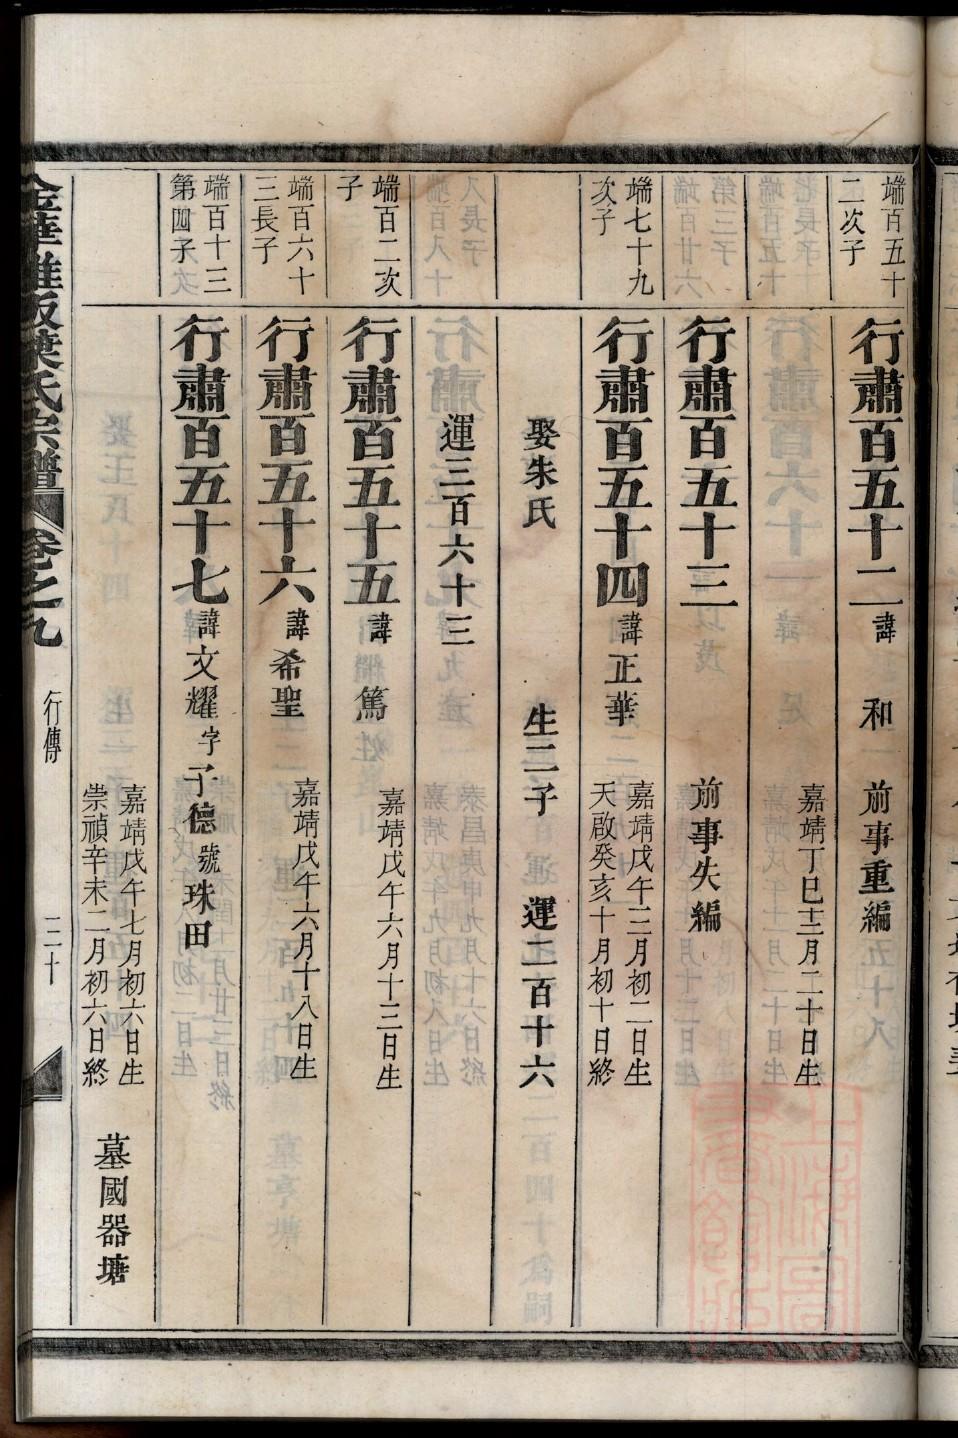 端百五十
二次子
行肅百五十二諱和
前事重編
嘉靖丁巳十二月二十日生
行肅百五十三
前事失編
端七十九
次子
行肅百五十四諱正華
嘉靖戊午三月初二日生
天啟癸亥十月初十日終
娶朱氏 生二子 運二百十六
運三百六十三
端百二次
子
行肅百五十五諱篤
嘉靖戊午六月十三日生
端百六十
三長子
行肅百五十六諱希聖
嘉靖戊午六月十八日生
端百十三
第四子
行肅百五十七諱文耀字子德號珠田
嘉靖戊午七月初六日生
崇禎辛未二月初六日終
墓國器塘
葉氏宗譜 卷之九 行傳 三十